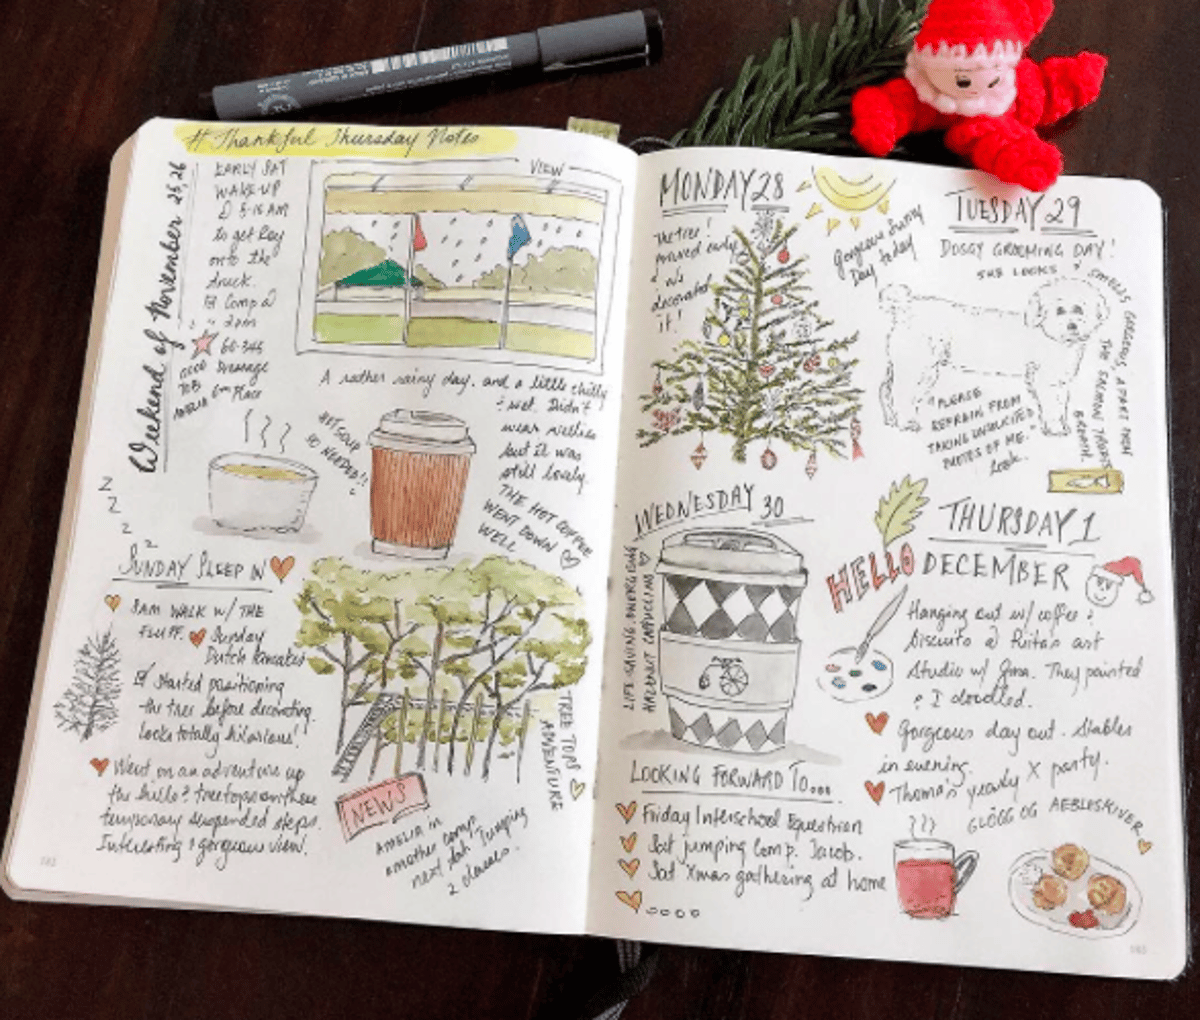 # Thankful Thursday Notes
Weekend of November 25, 26
EARLY SAT
WAKE-UP
@ 5-15 AM
to get Roy
onto the
truck.
Comp @
2pm
GOOD
JOB
AMELIA
60.345
Dressage
6th Place
VIEW
A rather rainy day, and a little chilly
& wet. Didn't
wear wellies
but it was
still lovely.
THE HOT COFFEE
WENT DOWN
WELL
HOT SOUP
SO NEEDED!!
Z
Z
Z
Z
SUNDAY SLEEP IN
8AM WALK W/ THE
FLUFF. Sunday
Dutch Pancakes
Started positioning
the tree before decorating.
Looks totally hilarious!
Went on an adventure up
the hills & treetops on these
temporary suspended steps.
Interesting & gorgeous view.
TREE TOPS
ADVENTURE
NEWS
AMELIA in
another comp.
next Sat. Jumping
2 classes.
MONDAY 28
The tree!
arrived early
& we
decorated
it!
Gorgeous Sunny
Day today
TUESDAY 29
DOGGY GROOMING DAY!
SHE LOOKS &
SMELLS GORGEOUS, APART FROM
THE SALMON TREATS
BREATH.
"PLEASE
REFRAIN FROM
TAKING UNSOLICITED
PHOTOS OF ME."
Look.
WEDNESDAY 30
LIFE-SAVING, ENERGISING
HAZELNUT CAPPUCCINO
LOOKING FORWARD TO...
Friday Interschool Equestrian
Sat jumping Comp. Jacob.
Sat Xmas gathering at home
THURSDAY 1
HELLO DECEMBER
Hanging out w/ coffee &
Biscuits @ Rita's art
Studio w/ Gina. They painted
& I doodled.
Gorgeous day out. Stables
in evening.
Thoma's yearly X party.
GLÖGG OG AEBLESKIVER
182
183